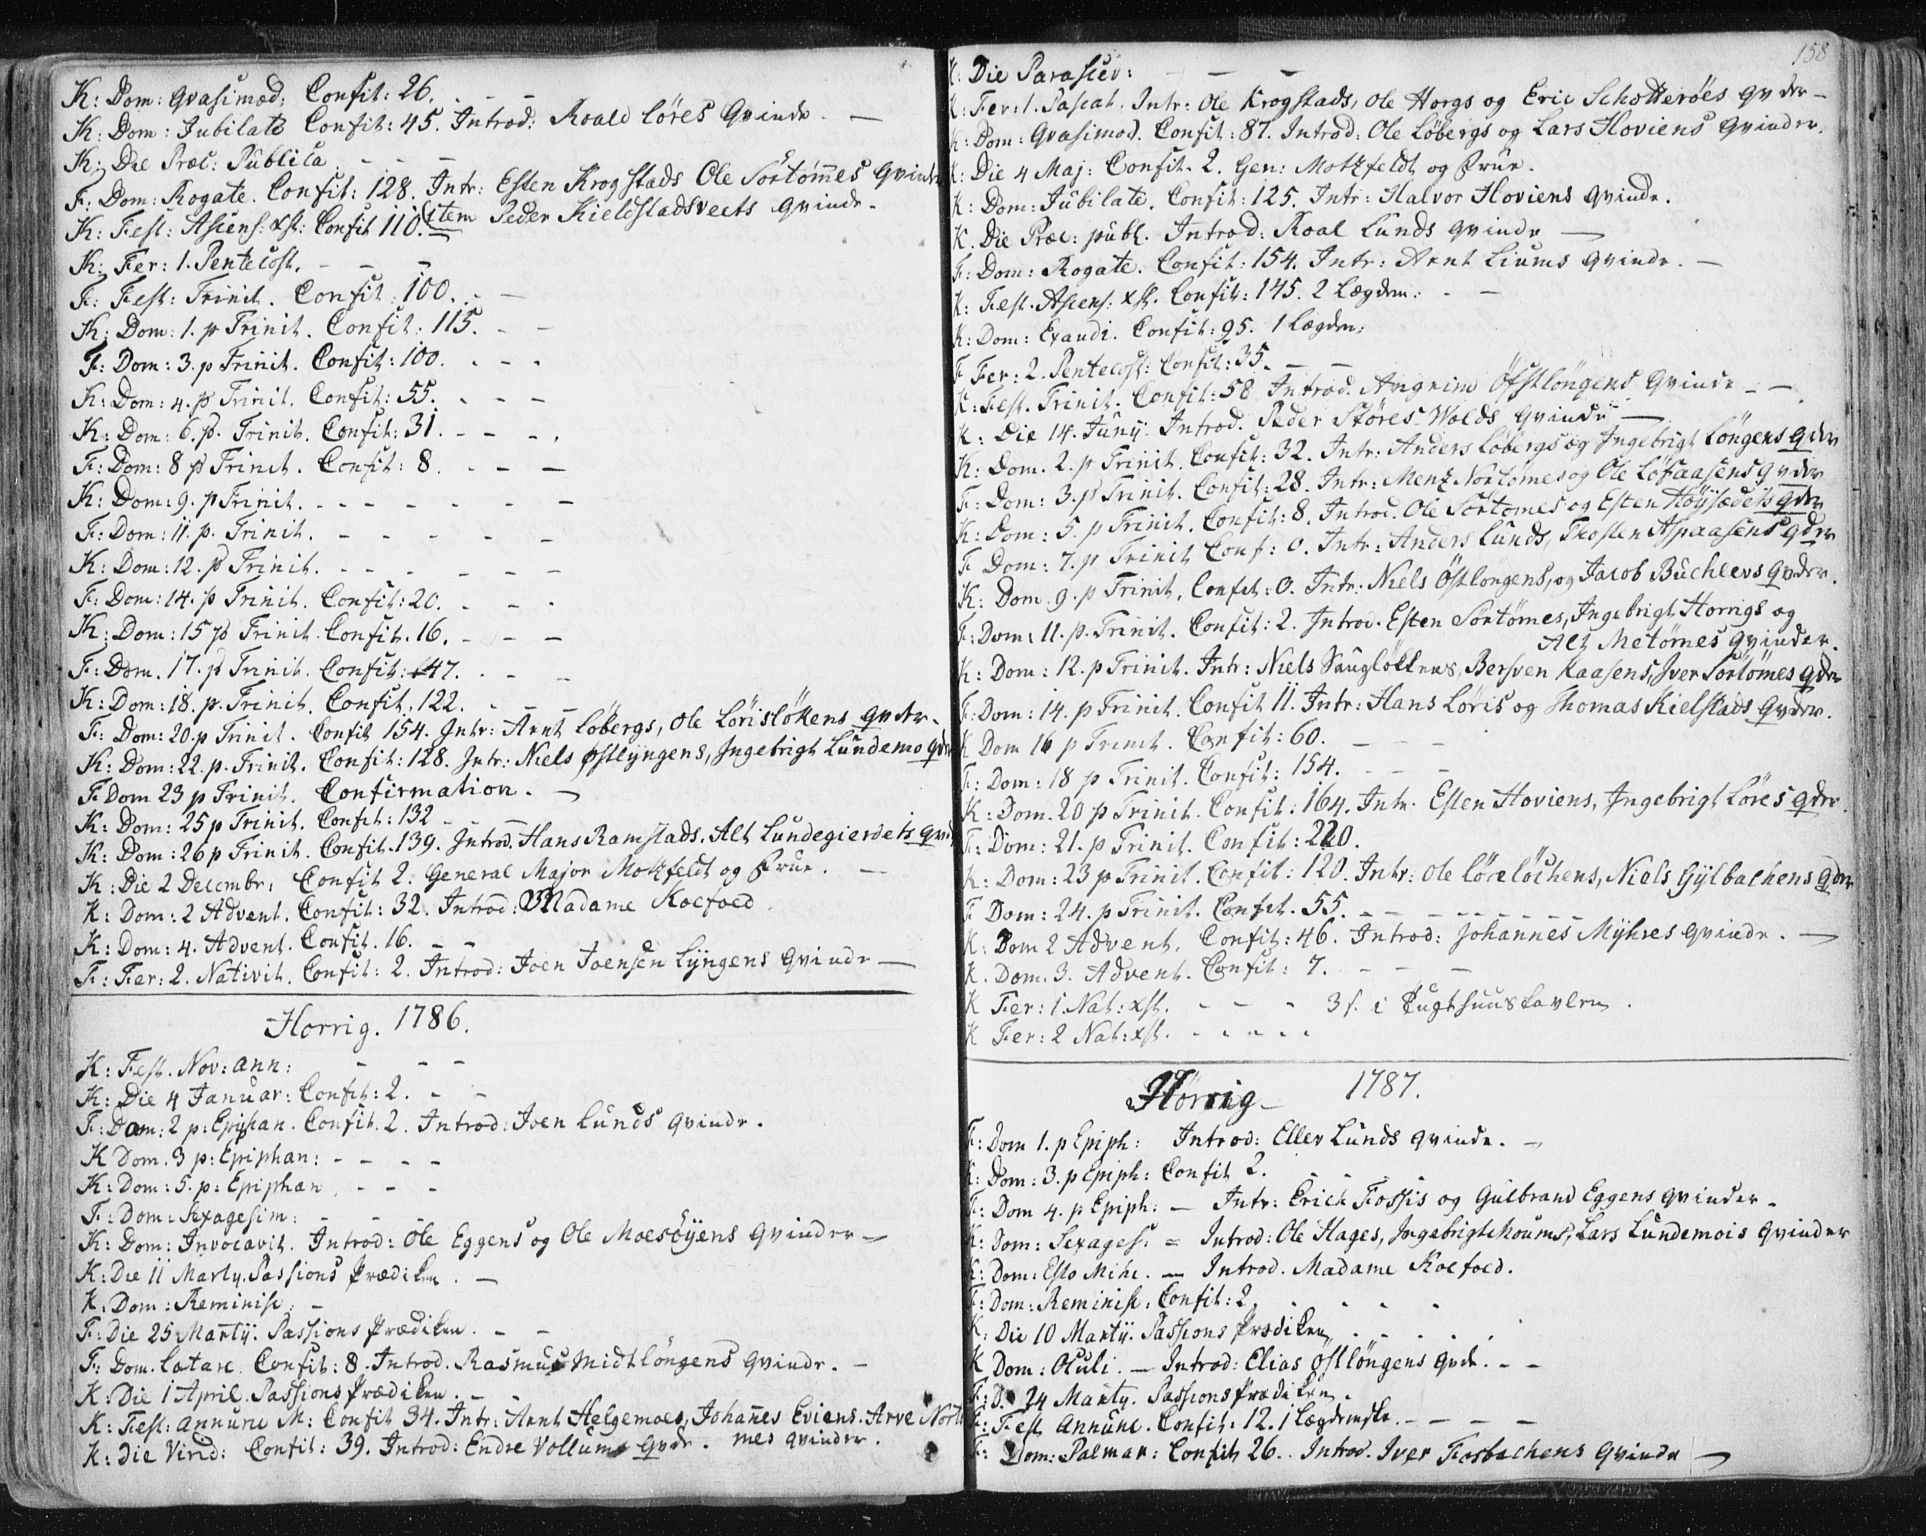 K: Dom: Qvasimod: Confit: 26. - - -
K: Dom: Jubilate Confit: 45. Introd: Roald Löres Qvinde. —
K: Die Præc: Publica. - - -
F: Dom: Rogate. Confit: 128. Intr: Esten Krogstads Ole Sörtömes Qvinde
K: Fest: Ascens: xst: Confit 110. item Peder Kieldstadsveets Qvinde.
K: Fer: 1. Pentecost. - - -
F: Fest: Trinit. Confit: 100. - -
K: Dom: 1. p Trinit. Confit: 115. - -
F: Dom: 3. p Trinit. Confit: 100. - - -
K: Dom: 4. p Trinit. Confit: 55. - - -
K: Dom: 6. p. Trinit. Confit: 31. - - -
F: Dom: 8 p Trinit. Confit: 8. - - -
K: Dom: 9. p Trinit. - - - - - - -
F: Dom: 11. p. Trinit. - - - - - -
K: Dom: 12. p Trinit. - - - - - -
F: Dom: 14. p Trinit. Confit: 20. - - -
K: Dom: 15 p Trinit. Confit. 16. - - -
F: Dom. 17. p Trinit. Confit: 47. - - -
K: Dom: 18. p. Trinit. Confit. 122. - - -
F: Dom: 20. p Trinit. Confit 154. Intr: Arnt Löbergs, Ole Lörislökens Qvder.
K: Dom: 22. p. Trinit. Confit: 128. Intr: Niels Østlyngens, Ingebrigt Lundemo Qder
F: Dom 23 p Trinit. Confirmation. —
K: Dom: 25 p Trinit. Confit: 132 - - -
K: Dom: 26 p Trinit. Confit. 139. Introd. Hans Ramstads. Alt Lundegierdets Qvd
K: Die 2 Decembr: Confit 2. General Major Motzfeldt og Frue. —
K: Dom: 2 Advent. Confit: 32. Introd: Madame Koefoed
K: Dom: 4. Advent. Confit. 16. - -
F: Fer: 2. Nativit. Confit: 2. Introd: Joen Joensen Lyngens Qvinde —
Horrig. 1786.
K: Fest. Nov: ann: - - -
K: Die 4 Januar: Confit: 2. - -
F: Dom: 2 p: Epiphan. Confit. 2. Introd: Joen Lunds Qvinde.
K Dom. 3 p: Epiphan: - - - -
K: Dom: 5. p: Epiphan. - - -
F: Dom: Sexagesim: - - -
K: Dom: Invocavit. Introd: Ole Eggens og Ole Moesöyens Qvinder —
K: Die 11 Marty. Passions Prædiken. —
K: Dom: Reminisc. -
F: Die 25 Martij. Passions Prædiken. - -
F: Dom. Latare. Confit: 8. Introd. Rasmus Midtlöngens Qvinde. —
K: Die 1 April. Passions Prædiken. - -
K: Fest: annunc M: Confit 34. Intr: Arnt Helgemoes, Johannes Eviens. Arve Nort
K: Die Virid: Confit: 39. Introd: Endre Vollums Qvde. mes Qvinder.
158
K: Die Parascev: - - -
K: Fer: 1. Pascat. Intr: Ole Krogstads, Ole Horgs og Eric Schotteröes Qvder —
K: Dom: Qvasimod. Confit: 87. Introd: Ole Löbergs og Lars Hoviens Qvinder.
K: Die 4 Maj: Confit. 2. Gen: Motzfeldt og Frue.
K: Dom: Jubilate. Confit: 125. Intr: Halvor Hoviens Qvinde.
K. Die Præc: publ. Introd: Roal Lunds Qvinde —
F: Dom: Rogate. Confit: 154. Intr: Arnt Liums Qvinde. —
K: Fest. Ascens: xst. Confit: 145. 2 Lægdem: - -
K: Dom: Exaudi. Confit: 95. 1 Lægdm:
F Fer: 2. Pentecost: Confit: 35. - -
K: Fest. Trinit. Confit: 58 Introd. Angrim Östlöngens Qvinde - -
K: Die 14. Junij. Introd. Peder Störes-Wolds Qvinde —
K: Dom. 2. p Trinit. Confit: 32. Intr: Anders Löbergs og Ingebrigt Löngens Qder
F: Dom: 3. p Trinit. Confit: 28. Intr: Mentz Nortömes og Ole Löfaasens Qvder
K: Dom: 5. p Trinit. Confit: 8. Introd. Ole Sörtomes og Esten Höysædets Qder
F Dom: 7. p Trinit Conf: 0. Intr: Anders Lunds, Thosten Aspaasens Qder
K: Dom: 9. p Trinit. Confit: 0. Intr. Niels Östlöngens, og Jacob Büchlers Qvder.
F: Dom: 11. p. Trinit. Confit: 2. Introd. Esten Sörtömes, Ingebrigt Horrigs og
Alt Metömes Qvinder.
K: Dom: 12. p Trinit. Intr: Niels Saugløkkens, Bersven Kaasens, Iver Sörtömes Qder
F: Dom: 14. p Trinit. Confit 11. Intr: Hans Löris og Thomas Kielstads Qvder.
K Dom 16 p Trinit. Confit: 60. - - -
F: Dom: 18 p Trinit. Confit: 154. - - -
K: Dom. 20 p Trinit. Confit: 164. Intr. Esten Hoviens, Ingebrigt Löres Qder.
F: Dom: 21. p Trinit. Confit: 220.
K: Dom: 23 p Trinit. Confit: 120. Intr: Ole Löreløchens, Niels Gylbachens Qder
F Dom: 24. p Trinit. Confit. 55. - - - - - - -
K: Dom 2 Advent. Confit: 46. Introd: Johannes Myhres Qvinde. —
K. Dom. 3. Advent. Confit: 7. - - -
K Fer: 1. Nat: xst. - - - 3 s. i Tugthuustavlen.
K Fer: 2 Nat: xst. - - - - -
Hörrig — 1787.
F: Dom 1. p Epiph: Introd: Eller Lunds Qvinde. —
K: Dom: 3. p Epiph: Confit 2. - -
F: Dom 4. p: Epiph: — Intr: Erich Fossis og Gulbrand Eggens Qvinder.
K: Dom: Sexages: = Introd: Ole Hages, Ingebrigt Moums, Lars Lundemois Qvinder
K: Dom: Esto Mihi. — Introd. Madame Koefoed.
F: Dom: Reminisc: Confit: 2 - - - -
K: Die 10 Martij. Passions Prædiken. - - - - -
K Dom: Oculi. — Introd: Elias Östlöngens Qvde. - -
F: D. 24 Marty. Passions Prædiken.
K: Fest annunc. Confit: 12. 1 Lægdmske. - - - -
F: Dom: Palmar: Confit 26. Introd. Iver Fosbachens Qvinde —